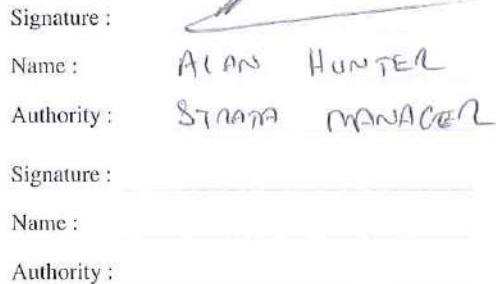 Signature :
Name : ALAN HUNTER
Authority : STRATA MANAGER
Signature :
Name :
Authority :